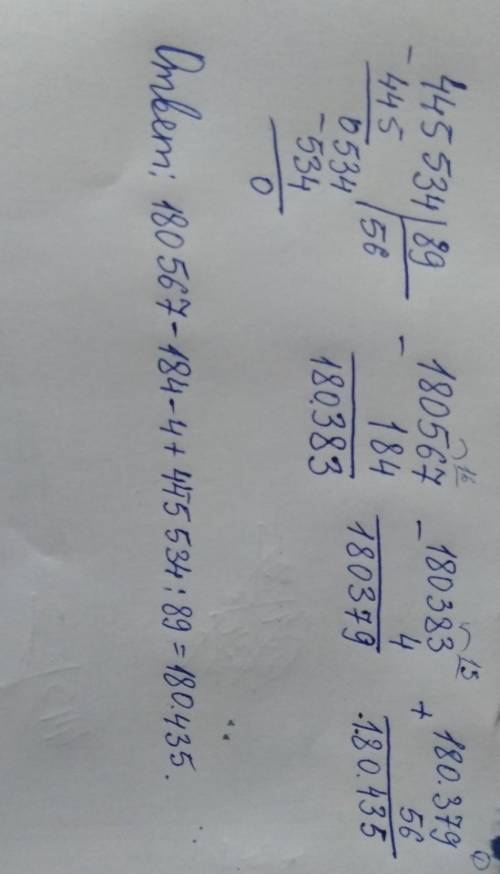 445 534 | 89
- 445
56
0534
- 534
0
16
- 180567
184
180.383
13
- 180383
4
180379
1
+ 180.379
56
180.435
Ответ: 180567-184-4+445534:89=180.435.